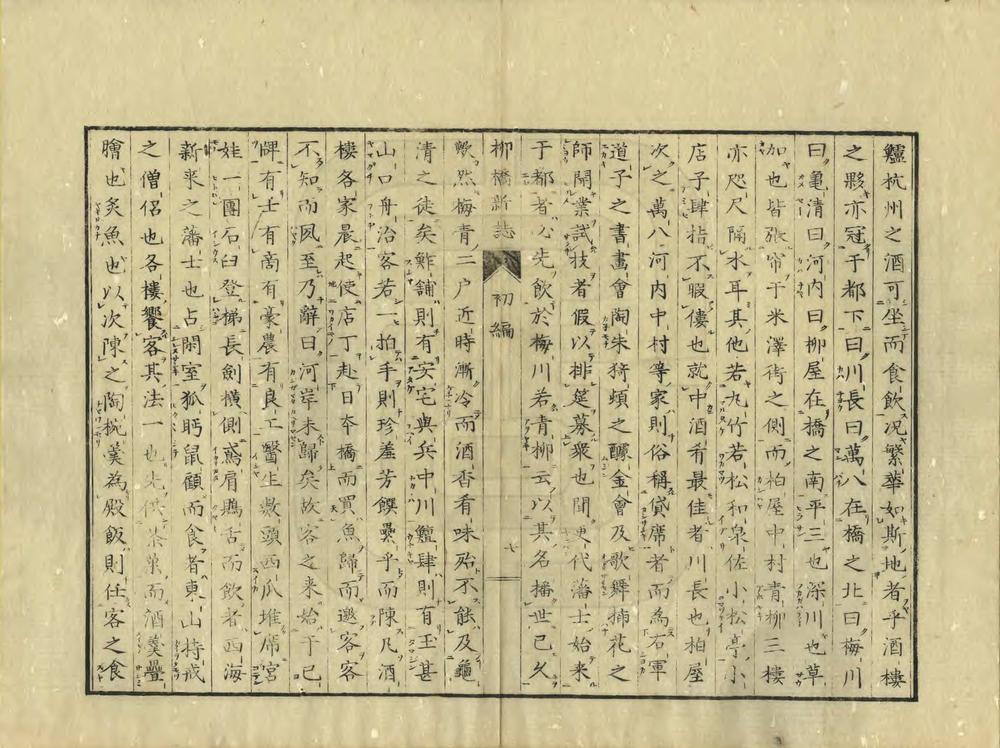 鱸杭州之酒可坐而食飲况繁華如斯地者乎酒樓
之夥亦冠于都下曰川長曰萬八在橋之北曰梅川
曰亀清曰河内曰柳屋在橋之南平三也深川也草
加也皆張帘于米澤街之側而柏屋中村青柳三樓
亦咫尺隔水耳其他若丸竹若松和泉佐小松亭小
店子肆指不暇僂也就中酒肴最佳者川長也柏屋
次之萬八河内中村等家則俗稱貸席者而為右軍
道子之書畫會陶朱猗頓之醵金會及歌舞揷花之
師開業試技者假以排筵募衆也間更代藩士始来
于都者必先飲於梅川若青柳云以其名播世已久
柳橋新誌 初編 七
歟然梅青二户近時漸冷而酒香肴味殆不能及龜
清之徒矣鮓舖則有安宅與兵中川鱣肆則有玉甚
山口舟冶客若一拍手則珍羞芳饌疊乎而陳凡酒
樓各家晨起使店丁赴日本橋而買魚歸而邀客客
不知而夙至乃辭曰河岸未歸矣故客之来始于已
牌有士有商有豪農有良工醫生數頭西瓜堆席宮
娃一團石臼登梯長劍横側鳶肩鴃舌而飲者西海
新来之藩士也占閑室狐眄鼠顧而食者東山持戒
之僧侶也各樓饗客其法一也先供茶菓而酒羹疊
膾也炙魚也以次陳之陶椀羹為殿飯則任客之食